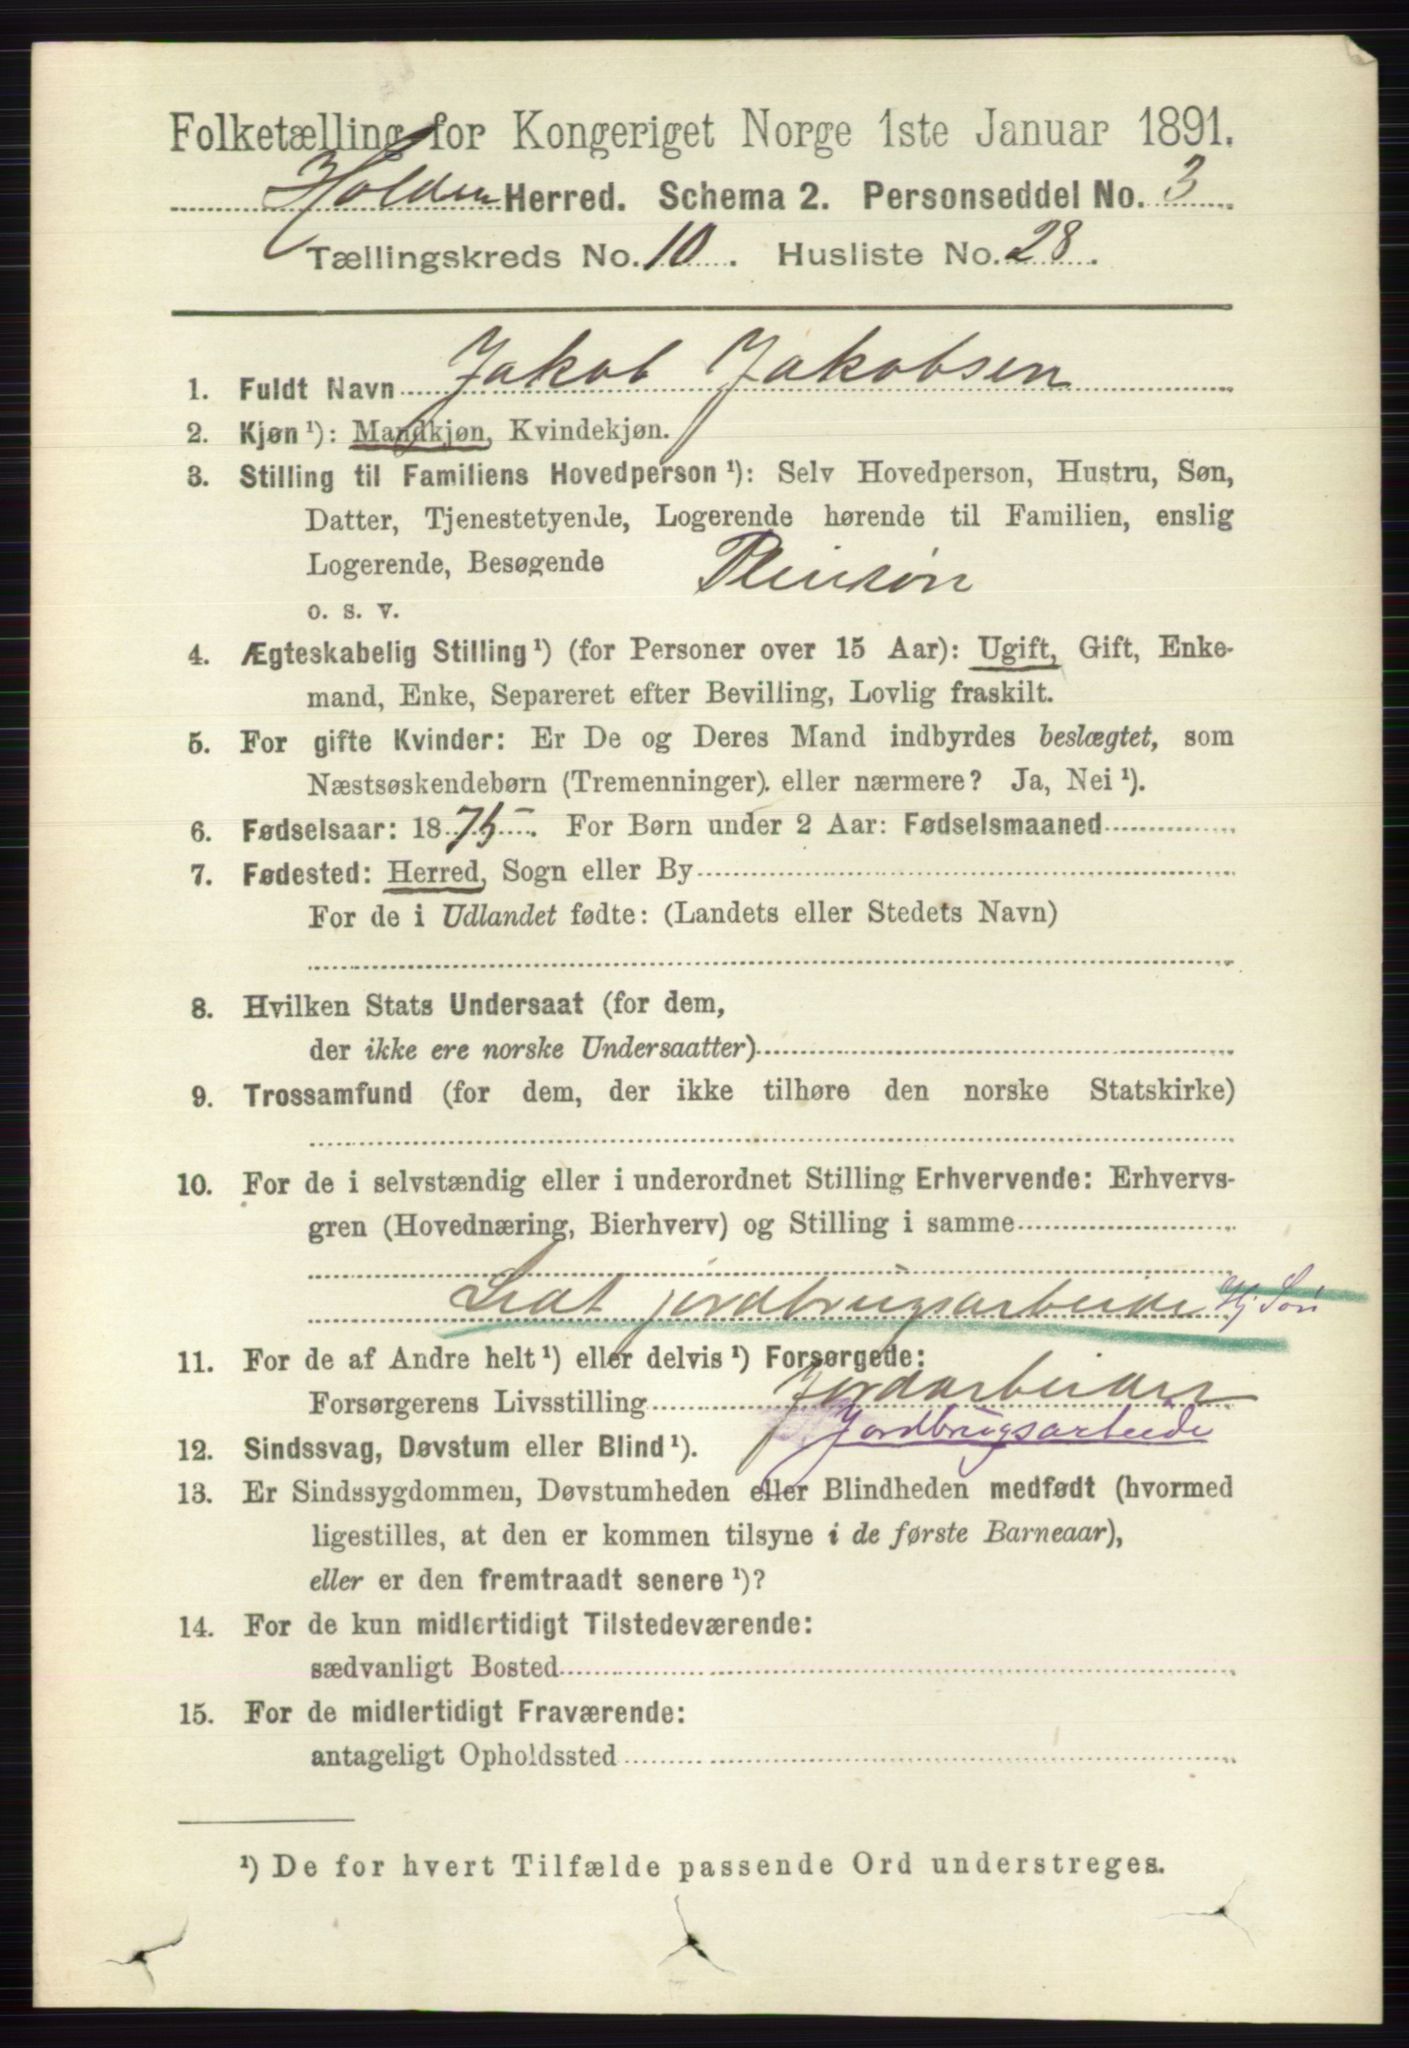 Folketælling for Kongeriget Norge 1ste Januar 1891.
Holden Herred. Schema 2. Personseddel No. 3
Tællingskreds No. 10. Husliste No. 28.
1. Fuldt Navn Jakob Jakobsen
2. Kjøn ¹): Mandkjøn, Kvindekjøn.
3. Stilling til Familiens Hovedperson ¹): Selv Hovedperson, Hustru, Søn,
Datter, Tjenestetyende, Logerende hørende til Familien, enslig
Logerende, Besøgende Pleiesøn
o. s. v.
4. Ægteskabelig Stilling ¹) (for Personer over 15 Aar): Ugift, Gift, Enke-
mand, Enke, Separeret efter Bevilling, Lovlig fraskilt.
5. For gifte Kvinder: Er De og Deres Mand indbyrdes beslægtet, som
Næstsøskendebørn (Tremenninger). eller nærmere? Ja, Nei ¹).
6. Fødselsaar: 1875. For Børn under 2 Aar: Fødselsmaaned
7. Fødested: Herred, Sogn eller By
For de i Udlandet fødte: (Landets eller Stedets Navn)
8. Hvilken Stats Undersaat (for dem,
der ikke ere norske Undersaatter)
9. Trossamfund (for dem, der ikke tilhøre den norske Statskirke)
10. For de i selvstændig eller i underordnet Stilling Erhvervende: Erhvervs-
gren (Hovednæring, Bierhverv) og Stilling i samme
Lidt jordbrugsarbeide Hj Søn
11. For de af Andre helt ¹) eller delvis ¹) Forsørgede:
Forsørgerens Livsstilling Jordarbeider
Jordbrugsarbeide
12. Sindssvag, Døvstum eller Blind ¹).
13. Er Sindssygdommen, Døvstumheden eller Blindheden medfødt (hvormed
ligestilles, at den er kommen tilsyne i de første Barneaar),
eller er den fremtraadt senere ¹)?
14. For de kun midlertidigt Tilstedeværende:
sædvanligt Bosted
15. For de midlertidigt Fraværende:
antageligt Opholdssted
¹) De for hvert Tilfælde passende Ord understreges.